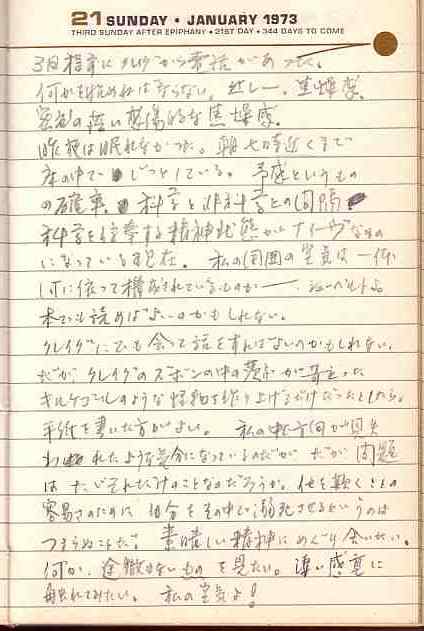 21 SUNDAY • JANUARY 1973
THIRD SUNDAY AFTER EPIPHANY • 21ST DAY • 344 DAYS TO COME
クレイグから電話があった。
何かを ねばならない。 焦燥感。
焦燥感。
昨夜は眠れなかった。朝七時近くまで
床の中で じっとしている。 予感というもの
の確率。 科学と非科学との間隔
科学を信奉する精神状態がナイーヴなもの
になっている現在。 私の周囲の空気は一体
何に依って構成されているものか──。
本でも読めばよいのかもしれない。
クレイグにでも会って話をすればよいのかもしれない。
だが クレイグのズボンの中の
キルケゴールのような怪物を作り上げるだけだったとしたら。
手紙を書いた方がよい。 私の中で方向が見失
われたような気分になっているのだが だが 問題
はただそれだけのことなのだろうか。他を欺くことの
容易さのために 自分をその中で溺死させるというのは
つまらぬことだ。 素晴しい精神にめぐり会いたい。
何か、途徹もないものを見たい。凄い感覚に
触れてみたい。 私の空気よ!